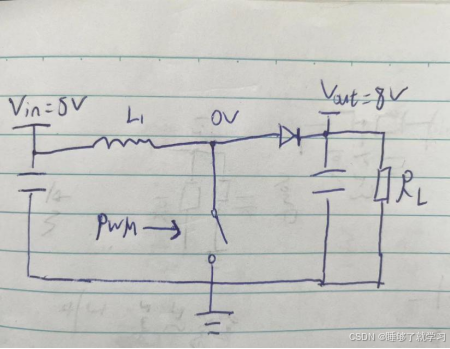 Vin=5V
L1
0V
Vout=8V
PWM
RL
CSDN @睡够了就学习